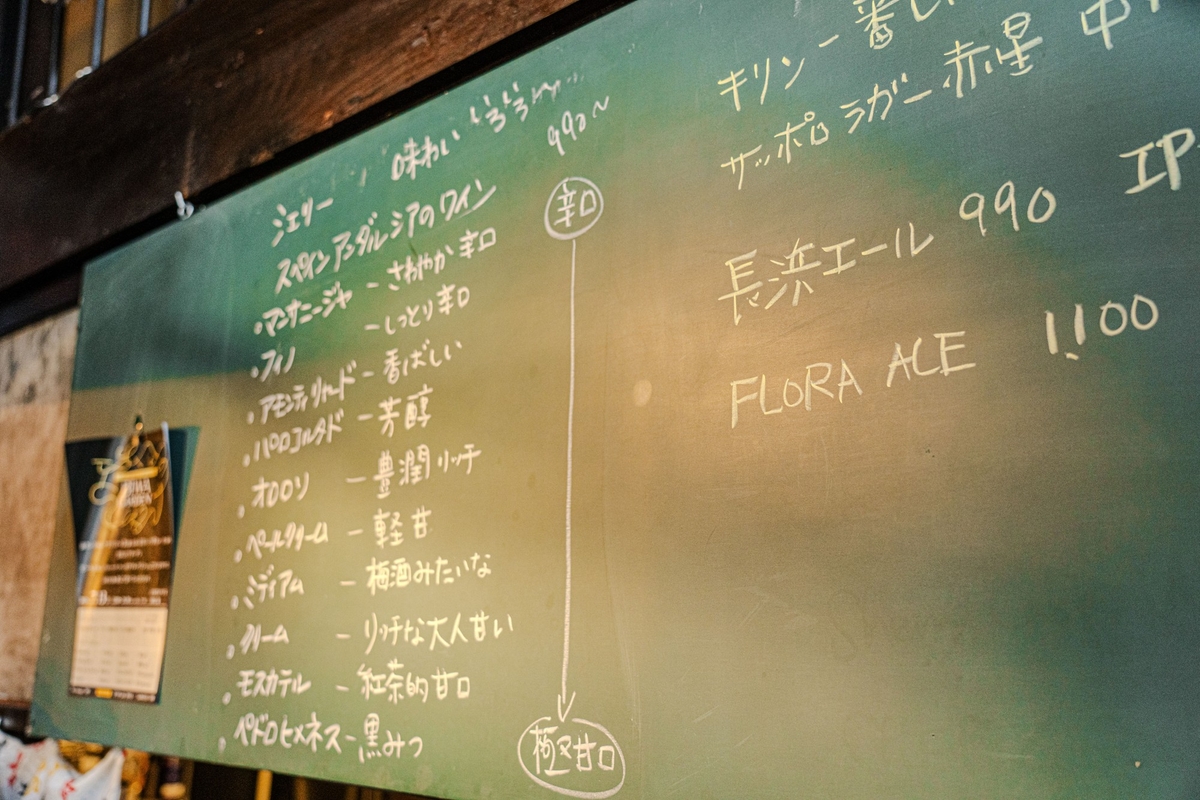 シェリー 味わいいろいろ 990~
スペインアンダルシアのワイン
・マンサニージャ - さわやか辛口
・フィノ - しっとり辛口
・アモンティリャード - 香ばしい
・パロコルタド - 芳醇
・オロロソ - 豊潤リッチ
・ペールクリーム - 軽甘
・ミディアム - 梅酒みたいな
・クリーム - リッチな大人甘い
・モスカテル - 紅茶的甘口
・ペドロヒメネス - 黒みつ
辛口
極甘口
キリン 一番し
サッポロラガー赤星 中
長浜エール 990 IP
FLORA ACE 1,100